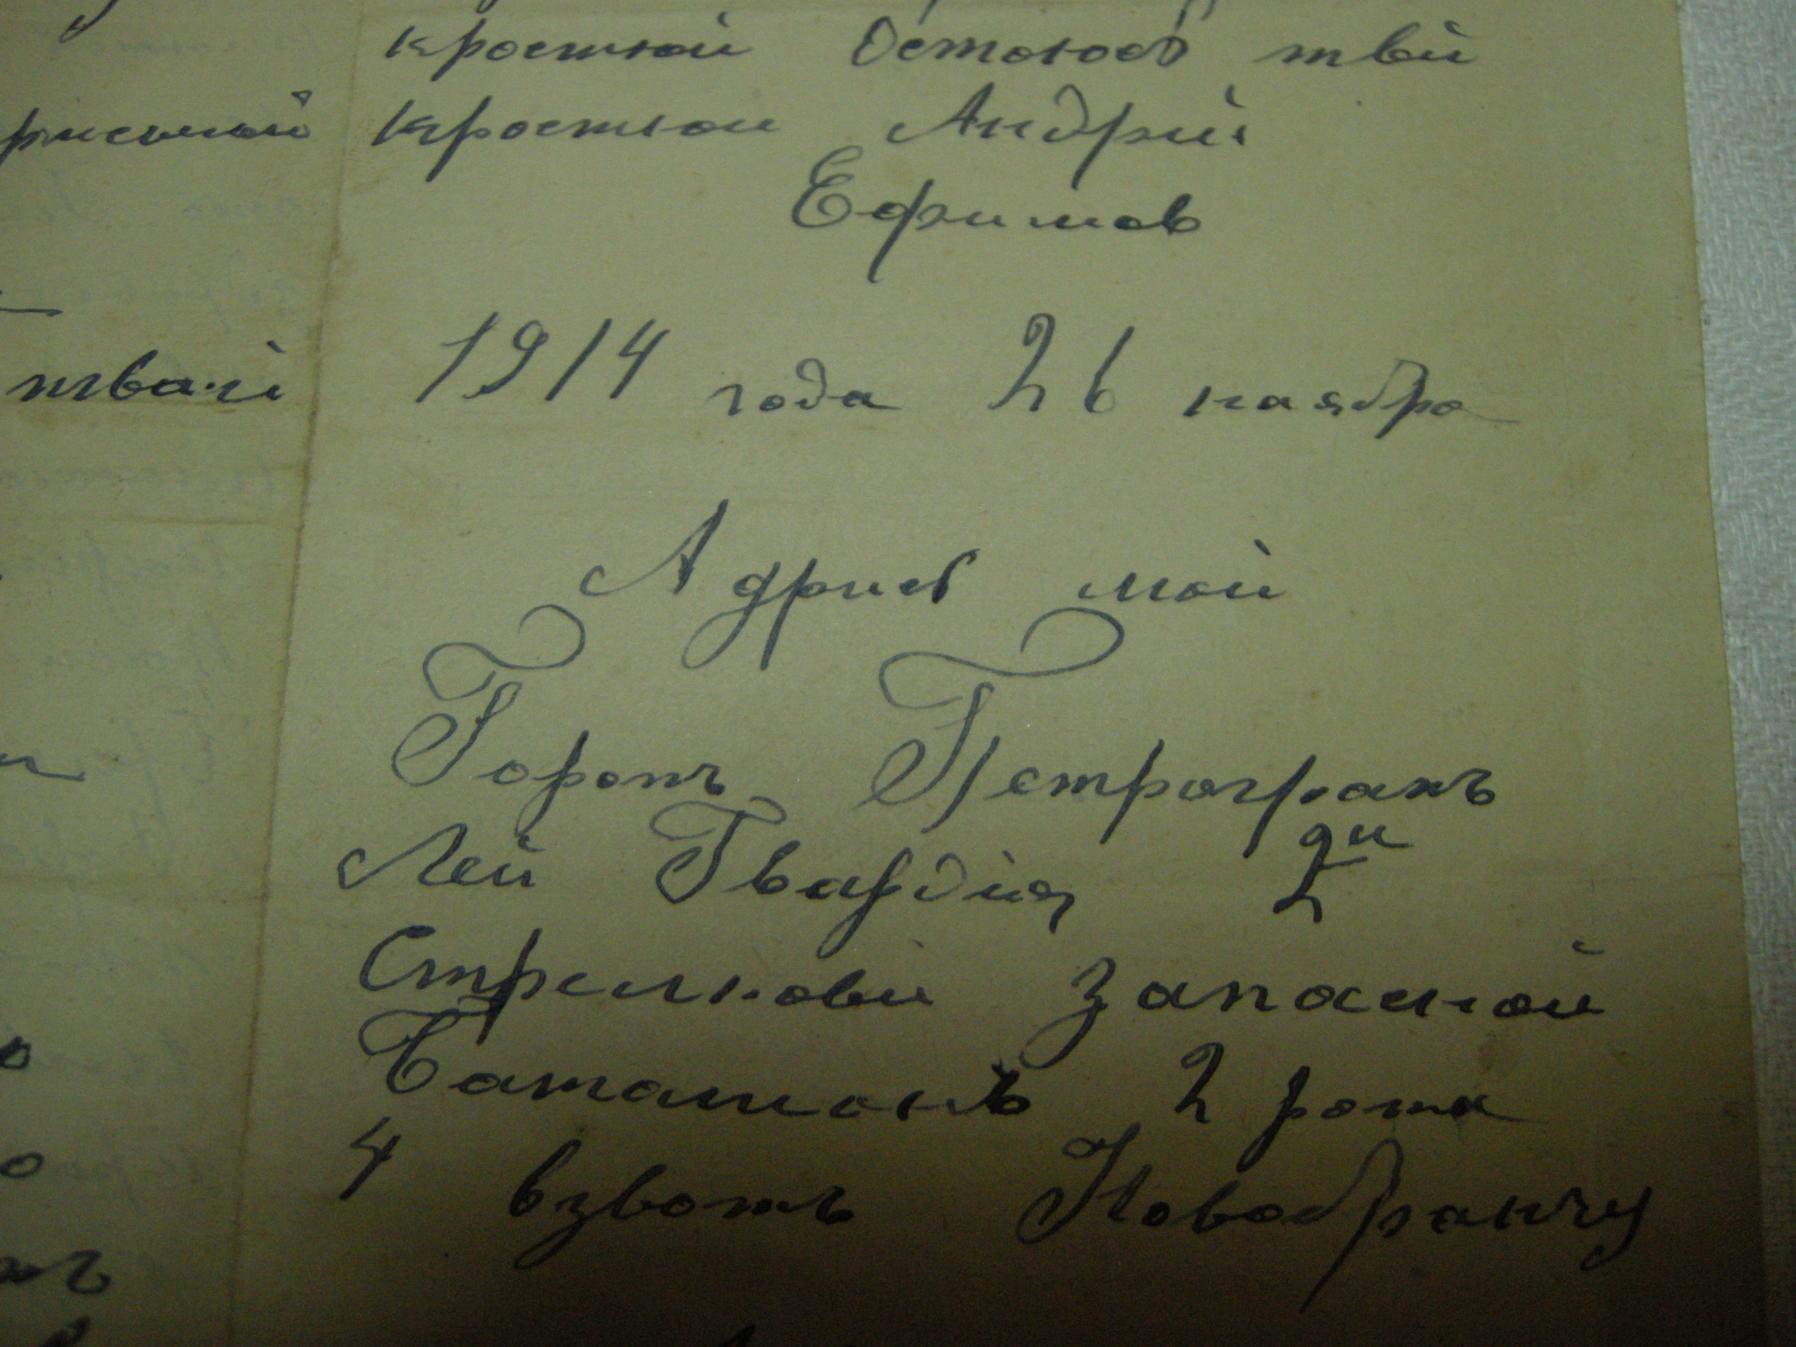 кростной Остоюсь твой
кростной Андрий
Ефимов
1914 года 26 ноября
Адрис мой
Горотъ Петроградъ
Лей Гвардия 2ди
Стрелковй Запасной
Баталионъ 2 рота
4 взвотъ Новобранчу
тваей